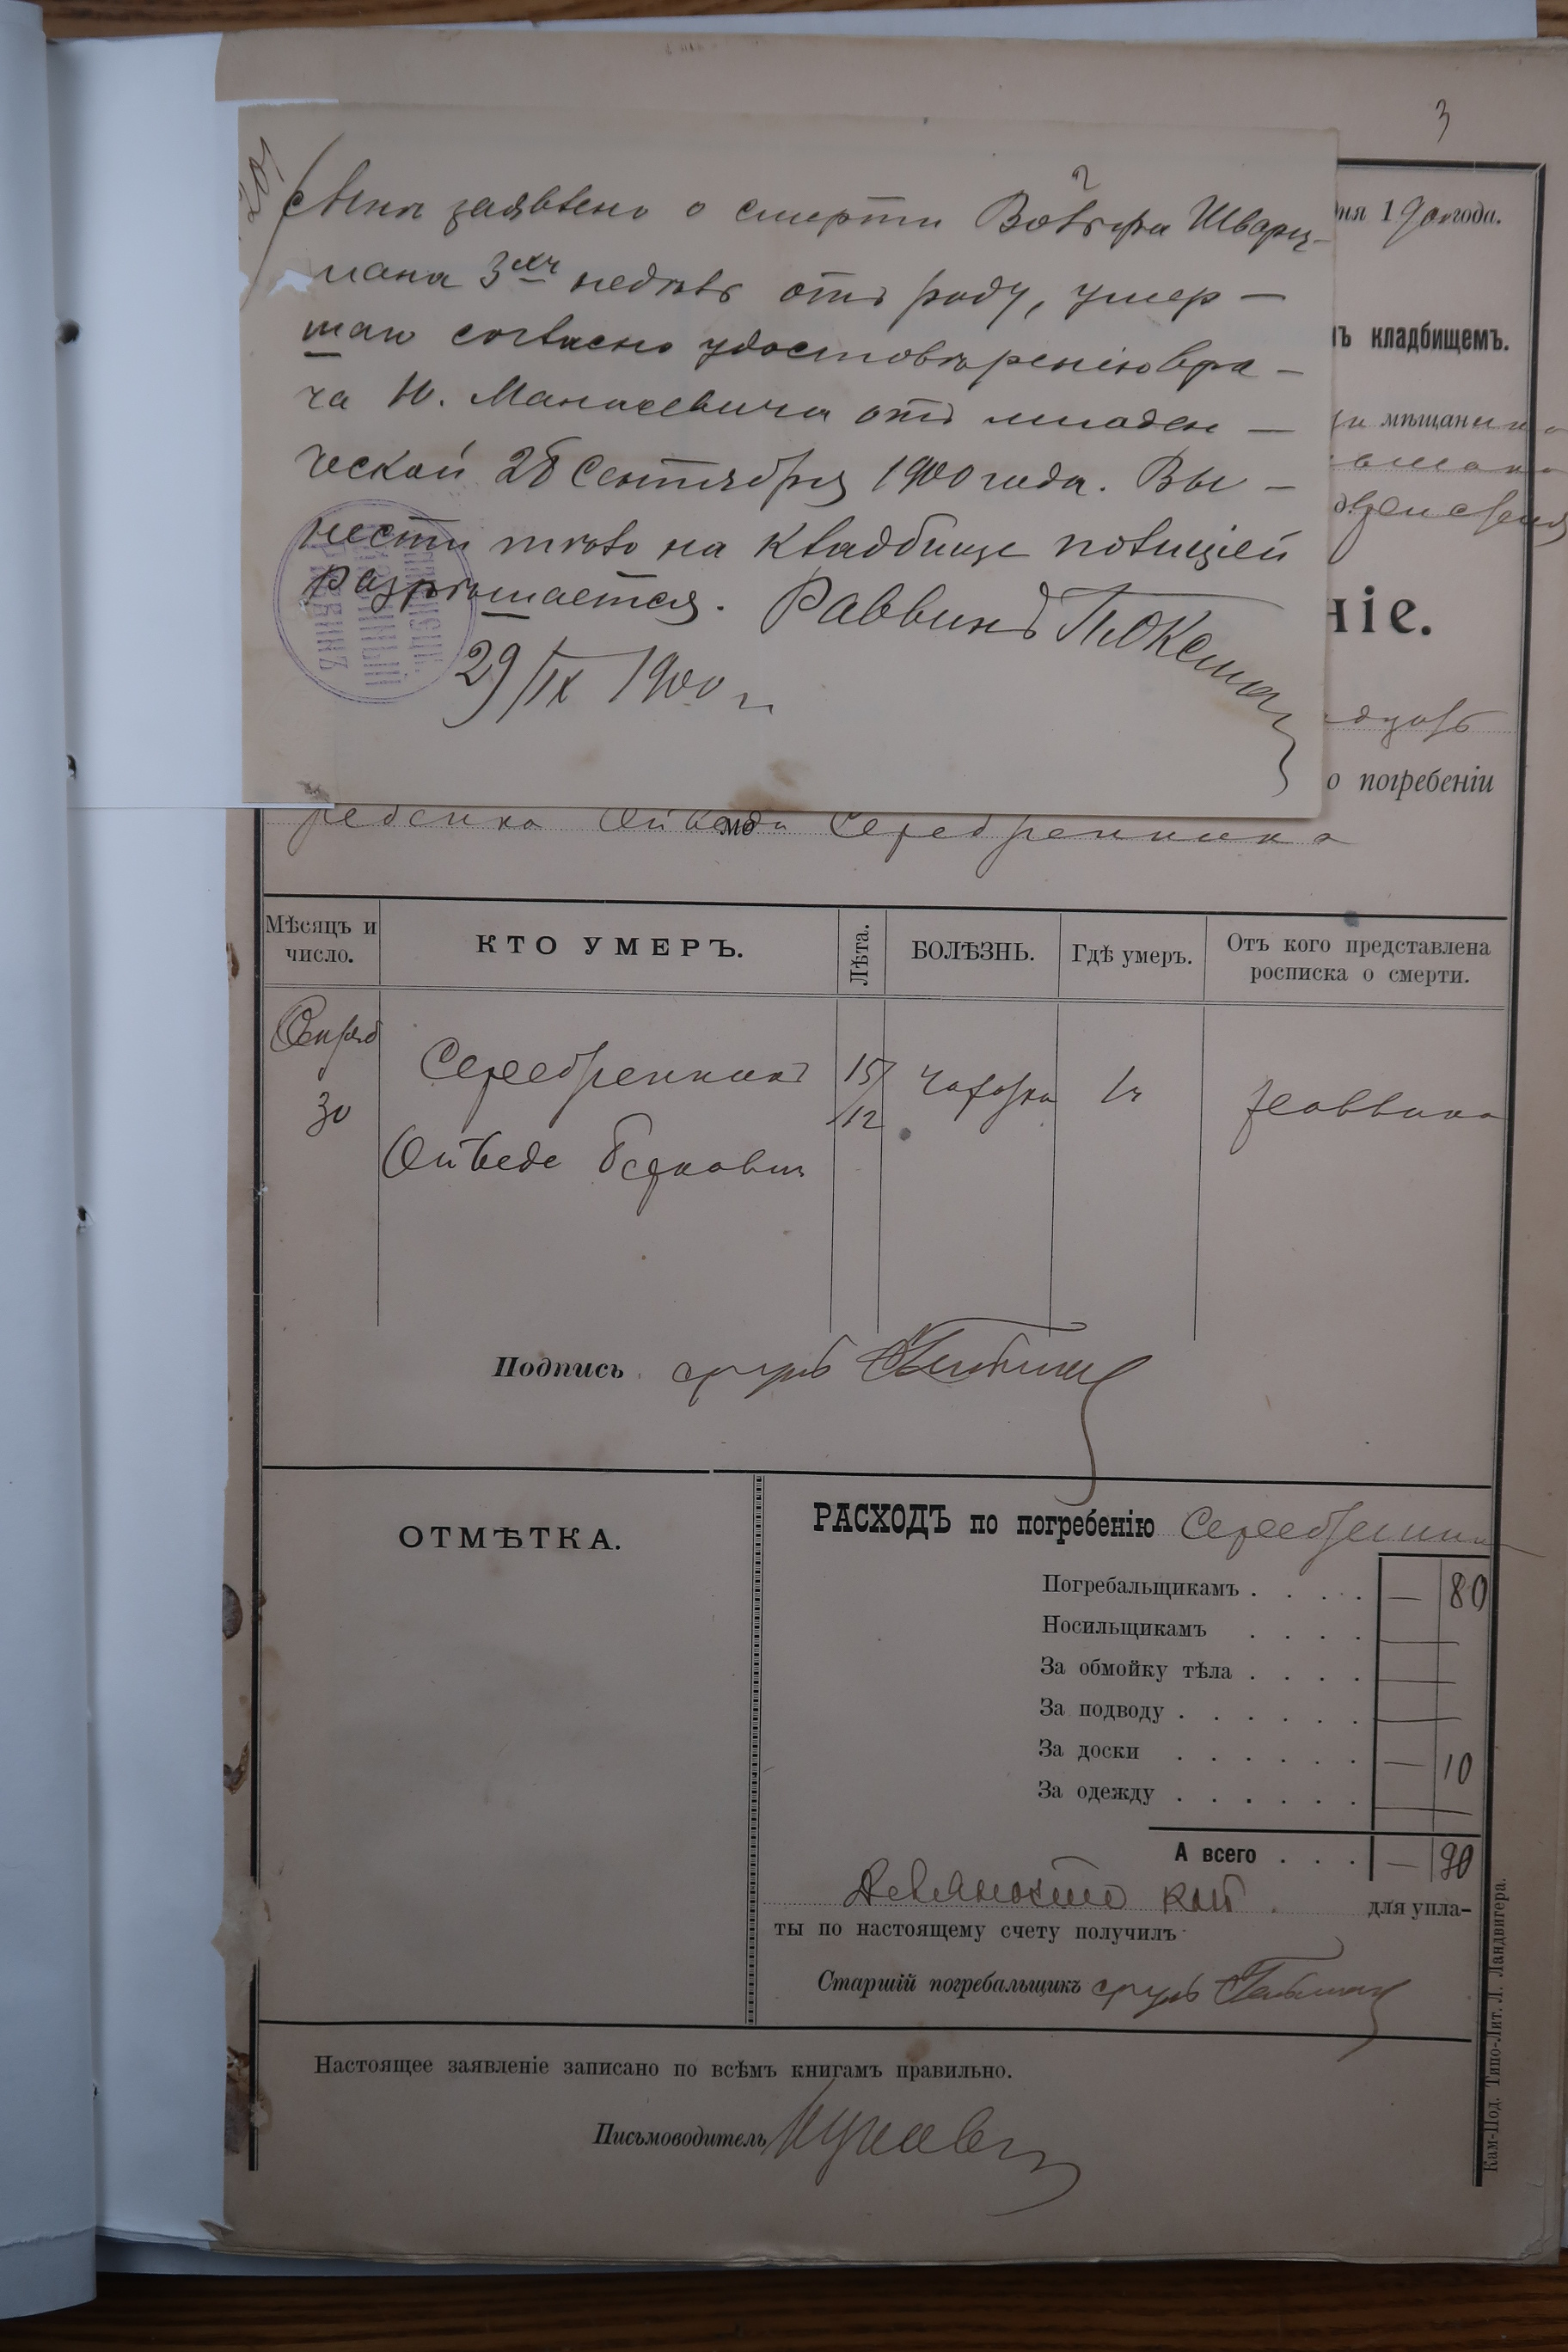 3
Мнѣ заявлено о смерти Вольфа Шварц-
мана 3хъ недѣль отъ роду, умер-
шаго согласно удостовѣренію вра-
ча Ю. Манасевича отъ младен-
ческой 28 Сентября 1900 года. Вы-
нести тѣло на кладбище полицiей
разрѣшается. Раввинъ
29/IX 1900 г.
КАЗЕННЫЙ
РАВВИНЪ
дня 1900 года.
кладбищемъ.
мѣщанина
ніе.
о погребеніи
ребенка Ойведи Серебренника
Мѣсяцъ и число.
КТО УМЕРЪ.
Лѣта.
БОЛѢЗНЬ.
Гдѣ умеръ.
Отъ кого представлена росписка о смерти.
Сентяб
30
Серебренникъ
Ойведе Берковъ
15/12
Чахотка
Раввина
Подпись
сруль
ОТМѢТКА.
РАСХОДЪ по погребенію Серебренник
Погребальщикамъ . . . . — 80
Носильщикамъ . . . .
За обмойку тѣла . . . .
За подводу . . . . . .
За доски . . . . . — 10
За одежду . . . . . .
А всего . . . — 90
Девяносто коп. для упла-
ты по настоящему счету получилъ
Старшій погребальщикъ сруль
Настоящее заявленіе записано по всѣмъ книгамъ правильно.
Письмоводитель
Кам-Под. Типо-Лит. Л. Ландвигера.